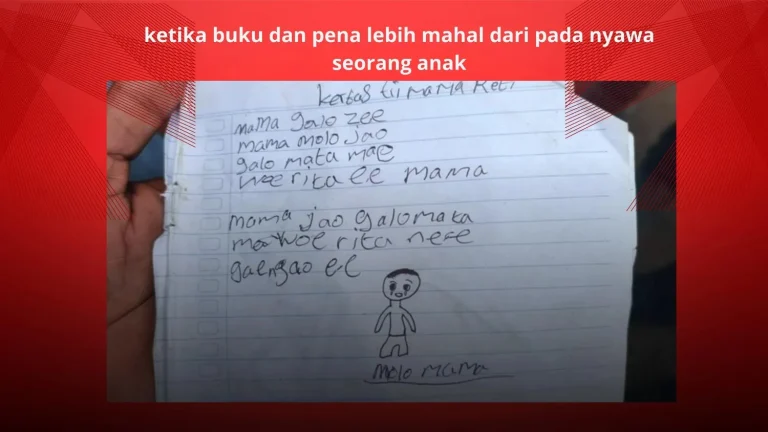 ketika buku dan pena lebih mahal dari pada nyawa
seorang anak
kertas tii mama Reti
mama galo zee
mama molo jao
galo mata mae
woe rita ee mama
mama jao galo mata
mae woe rita nee
gae ngao ee
Molo mama